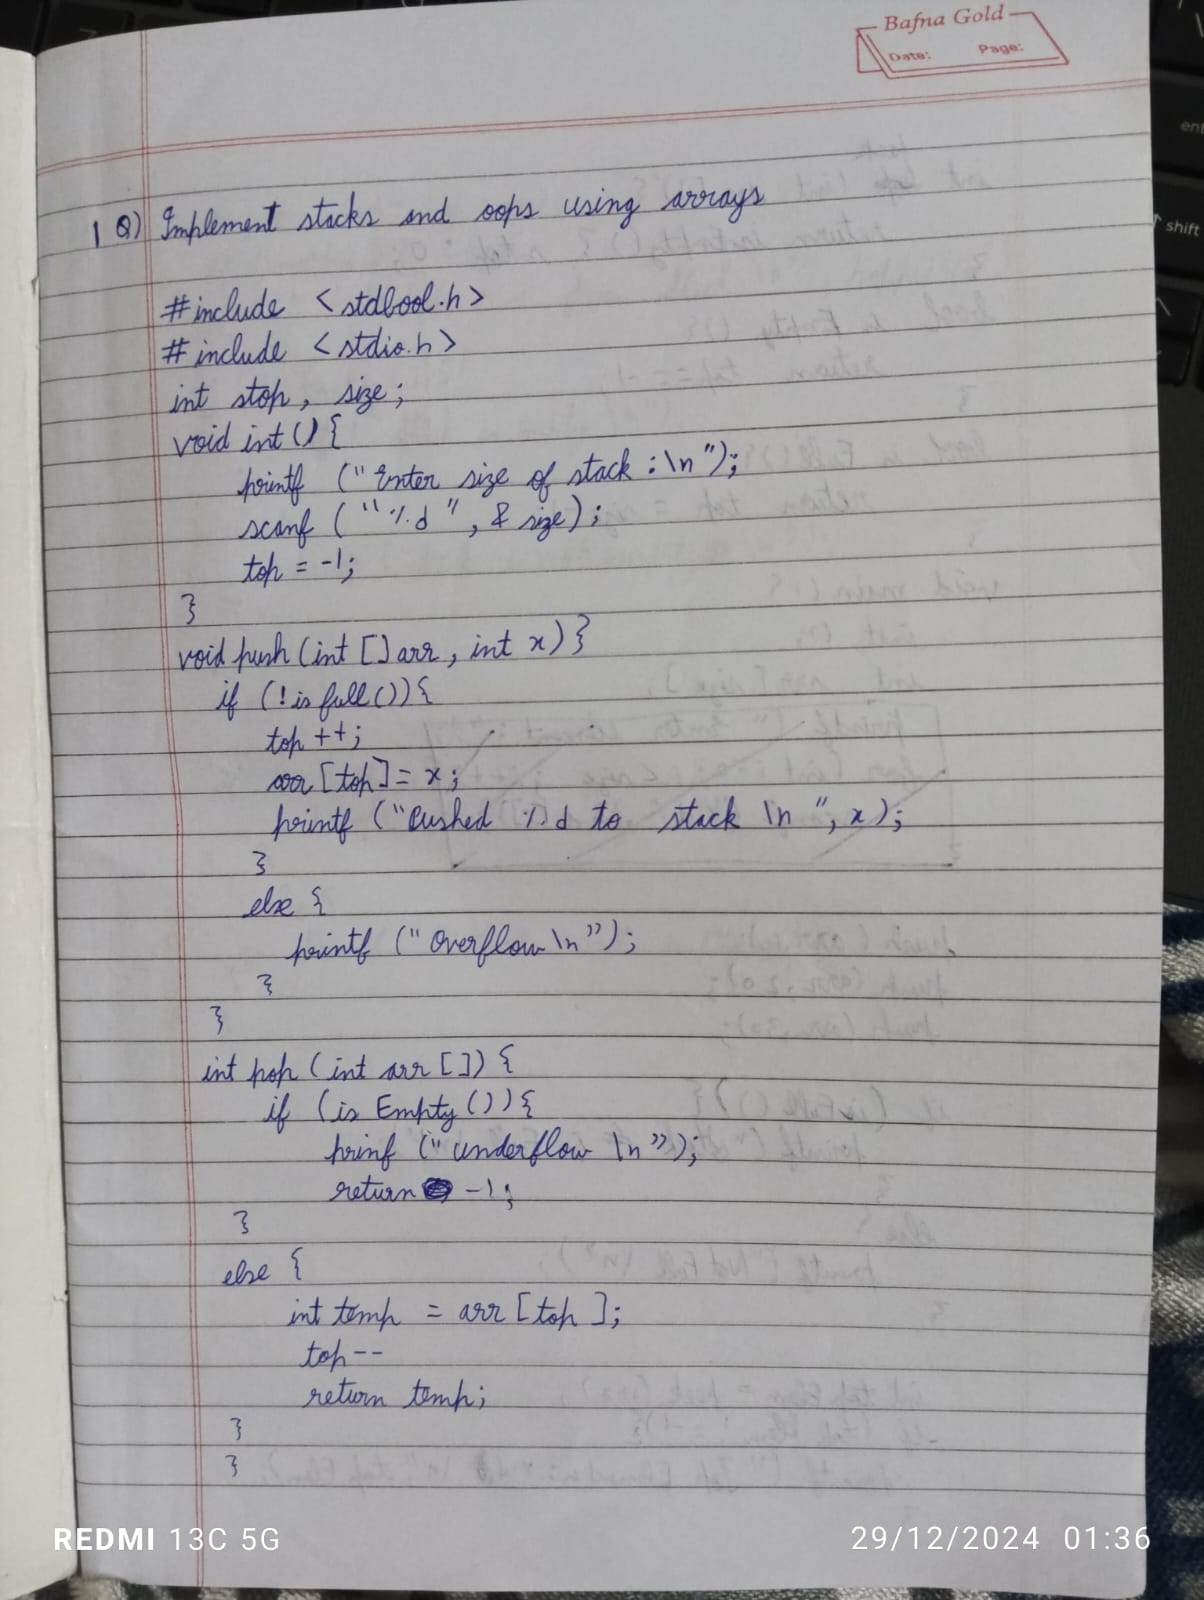 Bafna Gold
Date: Page:
1 Q) Implement stacks and oops using arrays
#include <stdbool.h>
#include <stdio.h>
int stop, size;
void int() {
printf ("Enter size of stack :\n");
scanf ("%d", & size);
top = -1;
}
void push (int [] arr, int x) }
if (! is full ()) {
top ++;
arr [top] = x;
printf ("Pushed %d to stack \n ", x);
}
else {
printf (" Overflow \n");
}
}
int pop (int arr []) {
if (is Empty ()) {
prinf (" underflow \n");
return -1;
}
else {
int temp = arr [top ];
top --
return temp;
}
}
enter
shift
REDMI 13C 5G
29/12/2024 01:36